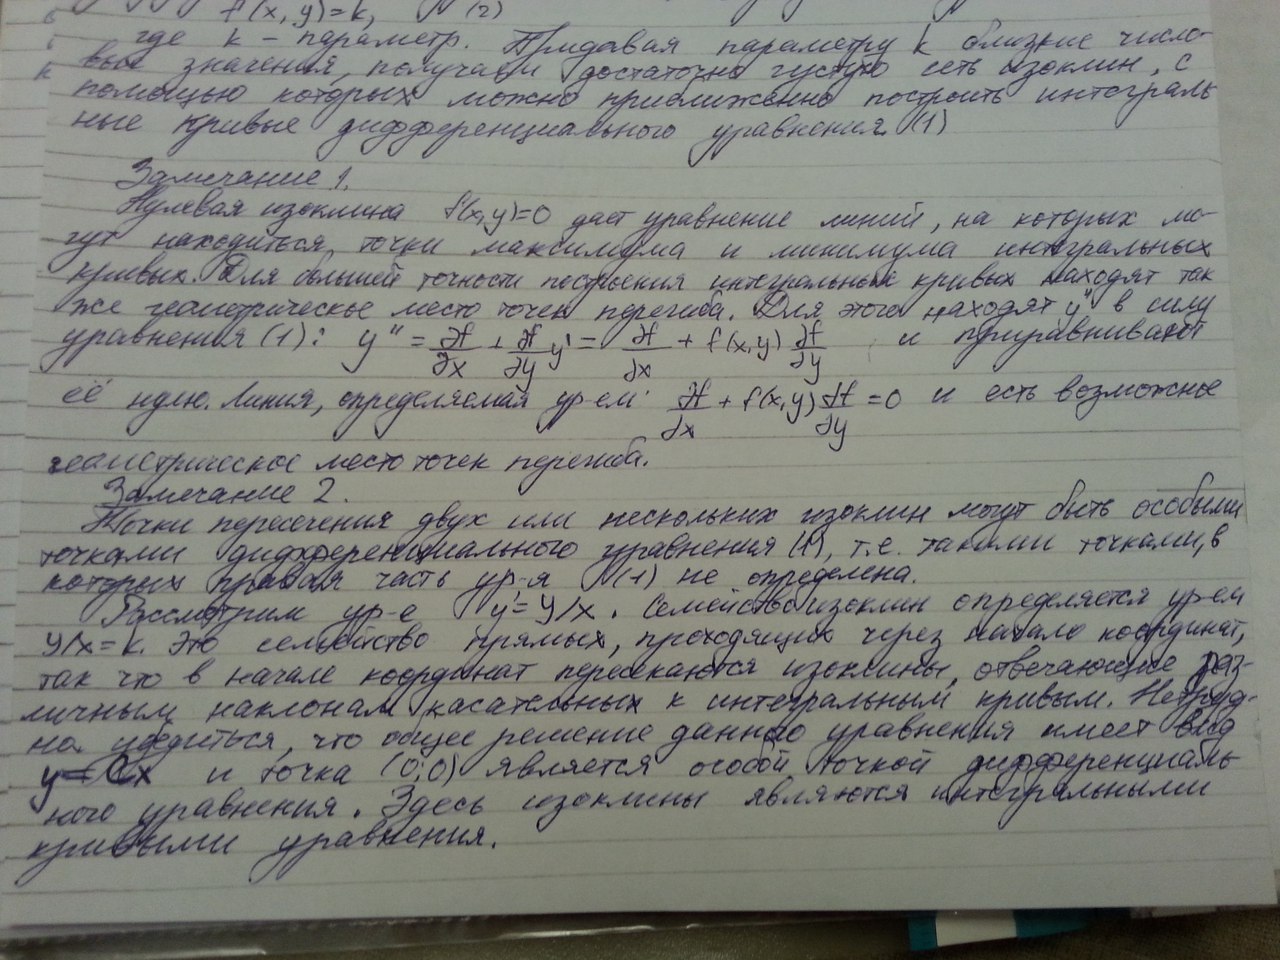 f(x,y)=k, (2)
где k - параметр. Придавая параметру k близкие число-
вые значения, получаем достаточно густую сеть изоклин, с
помощью которых можно приближенно построить интеграль
ные кривые дифференциального уравнения (1)
Замечание 1.
Нулевая изоклина f(x,y)=0 дает уравнение линий, на которых мо-
гут находиться точки максимума и минимума интегральных
кривых. Для большей точности построения интегральных кривых находят так
же геометрическое место точек перегиба. Для этого находят y'' в силу
уравнения (1): y'' = ∂f/∂x + ∂f/∂y y' = ∂f/∂x + f(x,y) ∂f/∂y и приравнивают
её нулю. Линия, определяемая ур-ем: ∂f/∂x + f(x,y) ∂f/∂y = 0 и есть возможное
геометрическое место точек перегиба.
Замечание 2.
Точки пересечения двух или нескольких изоклин могут быть особыми
точками дифференциального уравнения (1), т.е. такими точками, в
которых правая часть ур-я (1) не определена.
Рассмотрим ур-е y'=y/x. Семейство изоклин определяется ур-ем
y/x=k. Это семейство прямых, проходящих через начало координат,
так что в начале координат пересекаются изоклины, отвечающие раз-
личным наклонам касательных к интегральным кривым. Нетруд-
но убедиться, что общее решение данного уравнения имеет вид
y=Cx и точка (0;0) является особой точкой дифференциаль
ного уравнения. Здесь изоклины являются интегральными
кривыми уравнения.